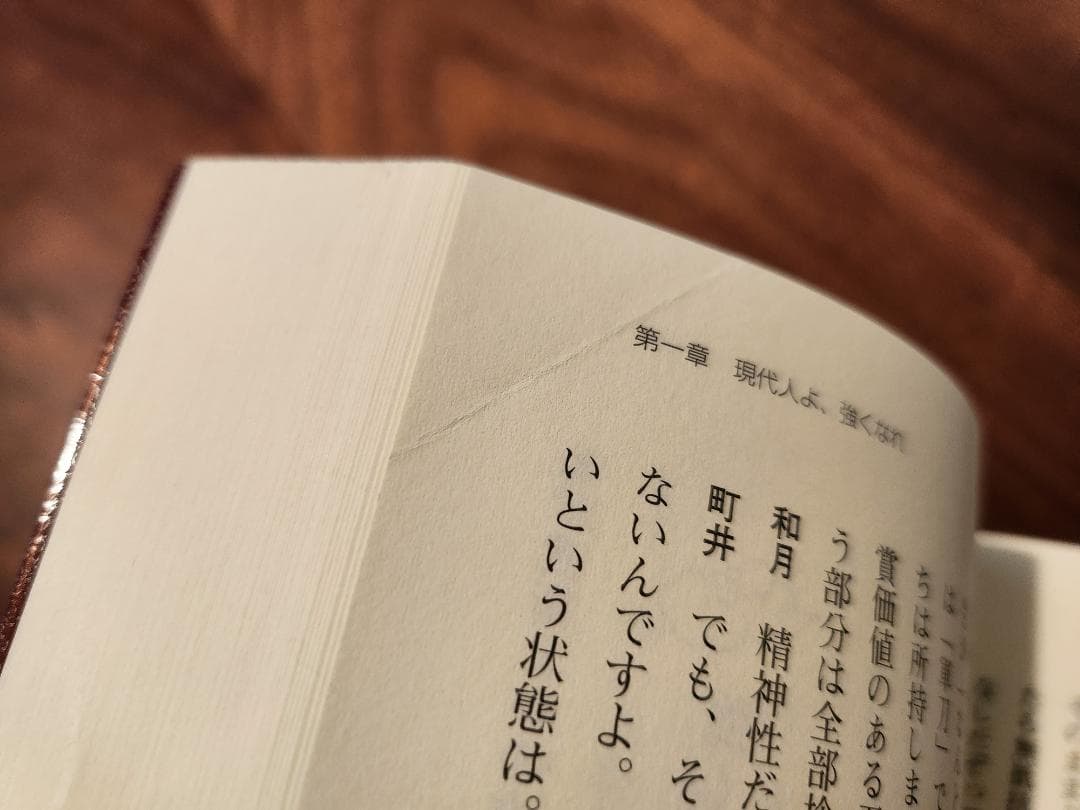 第一章　現代人よ、強くなれ
は「軍刀」で
ちは所持しま
賞価値のある
う部分は全部
和月　精神性だ
町井　でも、そ
ないんですよ。
いという状態は。